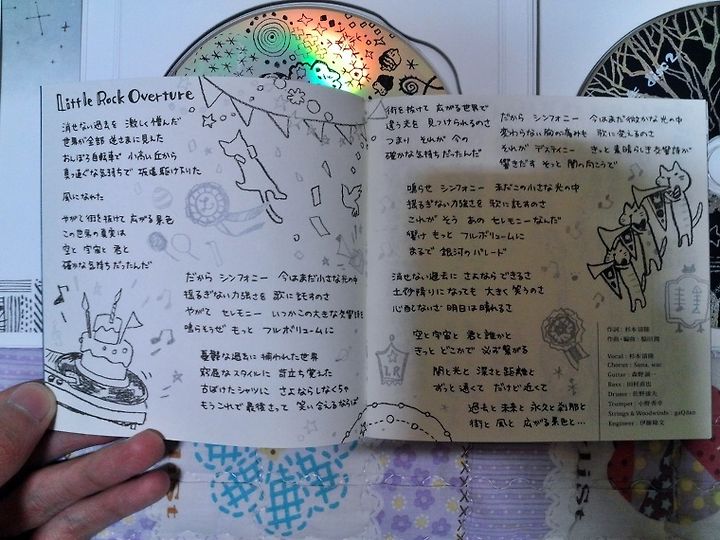 Little Rock Overture
消せない過去を 激しく憎んだ
世界が全部 逆さまに見えた
おんぼろ自転車で 小高い丘から
真っ直ぐな気持ちで 坂道駆け下りた
風になれた
やがて街を抜けて 広がる景色
この世界の真実は
空と 宇宙と 君と
確かな気持ちだったんだ
だから シンフォニー 今はまだ小さな光の中
揺るぎない力強さを 歌に託すのさ
やがて セレモニー いつかこの大きな交響詩が
鳴らそうぜ もっと フルボリュームに
憂鬱な過去に 捕われた世界
窮屈なスタイルに 苛立ち覚えた
古ぼけたシャツに さよならしなくちゃ
もうこれで最後さって 笑い合えるならば
街を抜けて 広がる世界で
違う光を 見つけられるのさ
つまり それが 今の
確かな気持ちだったんだ
だから シンフォニー 今はまだ微かな光の中
変わらない胸の痛みも 歌に変えるのさ
それが デスティニー きっと素晴らしき交響詩が
響きだす そっと 闇の向こうで
鳴らせ シンフォニー 未だこの小さな光の中
揺るぎない力強さを 歌に託すのさ
これが そう あの セレモニーなんだ
響け もっと フルボリュームに
まるで 銀河の パレード
消せない過去に さよならできるさ
土砂降りになっても 大きく笑うのさ
心配しないさ 明日は晴れるさ
空と宇宙と 君と誰かと
きっと どこかで 必ず繋がる
闇と光と 深さと距離と
ずっと遠くて だけど近くて
過去と未来と 永久と刹那と
街と 風と 広がる景色と…
作詞：杉本清隆
作曲・編曲：脇田潤
Vocal : 杉本清隆
Chorus : Sana, wac
Guitar : 森野誠一
Bass : 田村直也
Drums : 佐野康夫
Trumpet : 小野香章
Strings & Woodwinds : gaQdan
Engineer : 伊藤綾文
LR